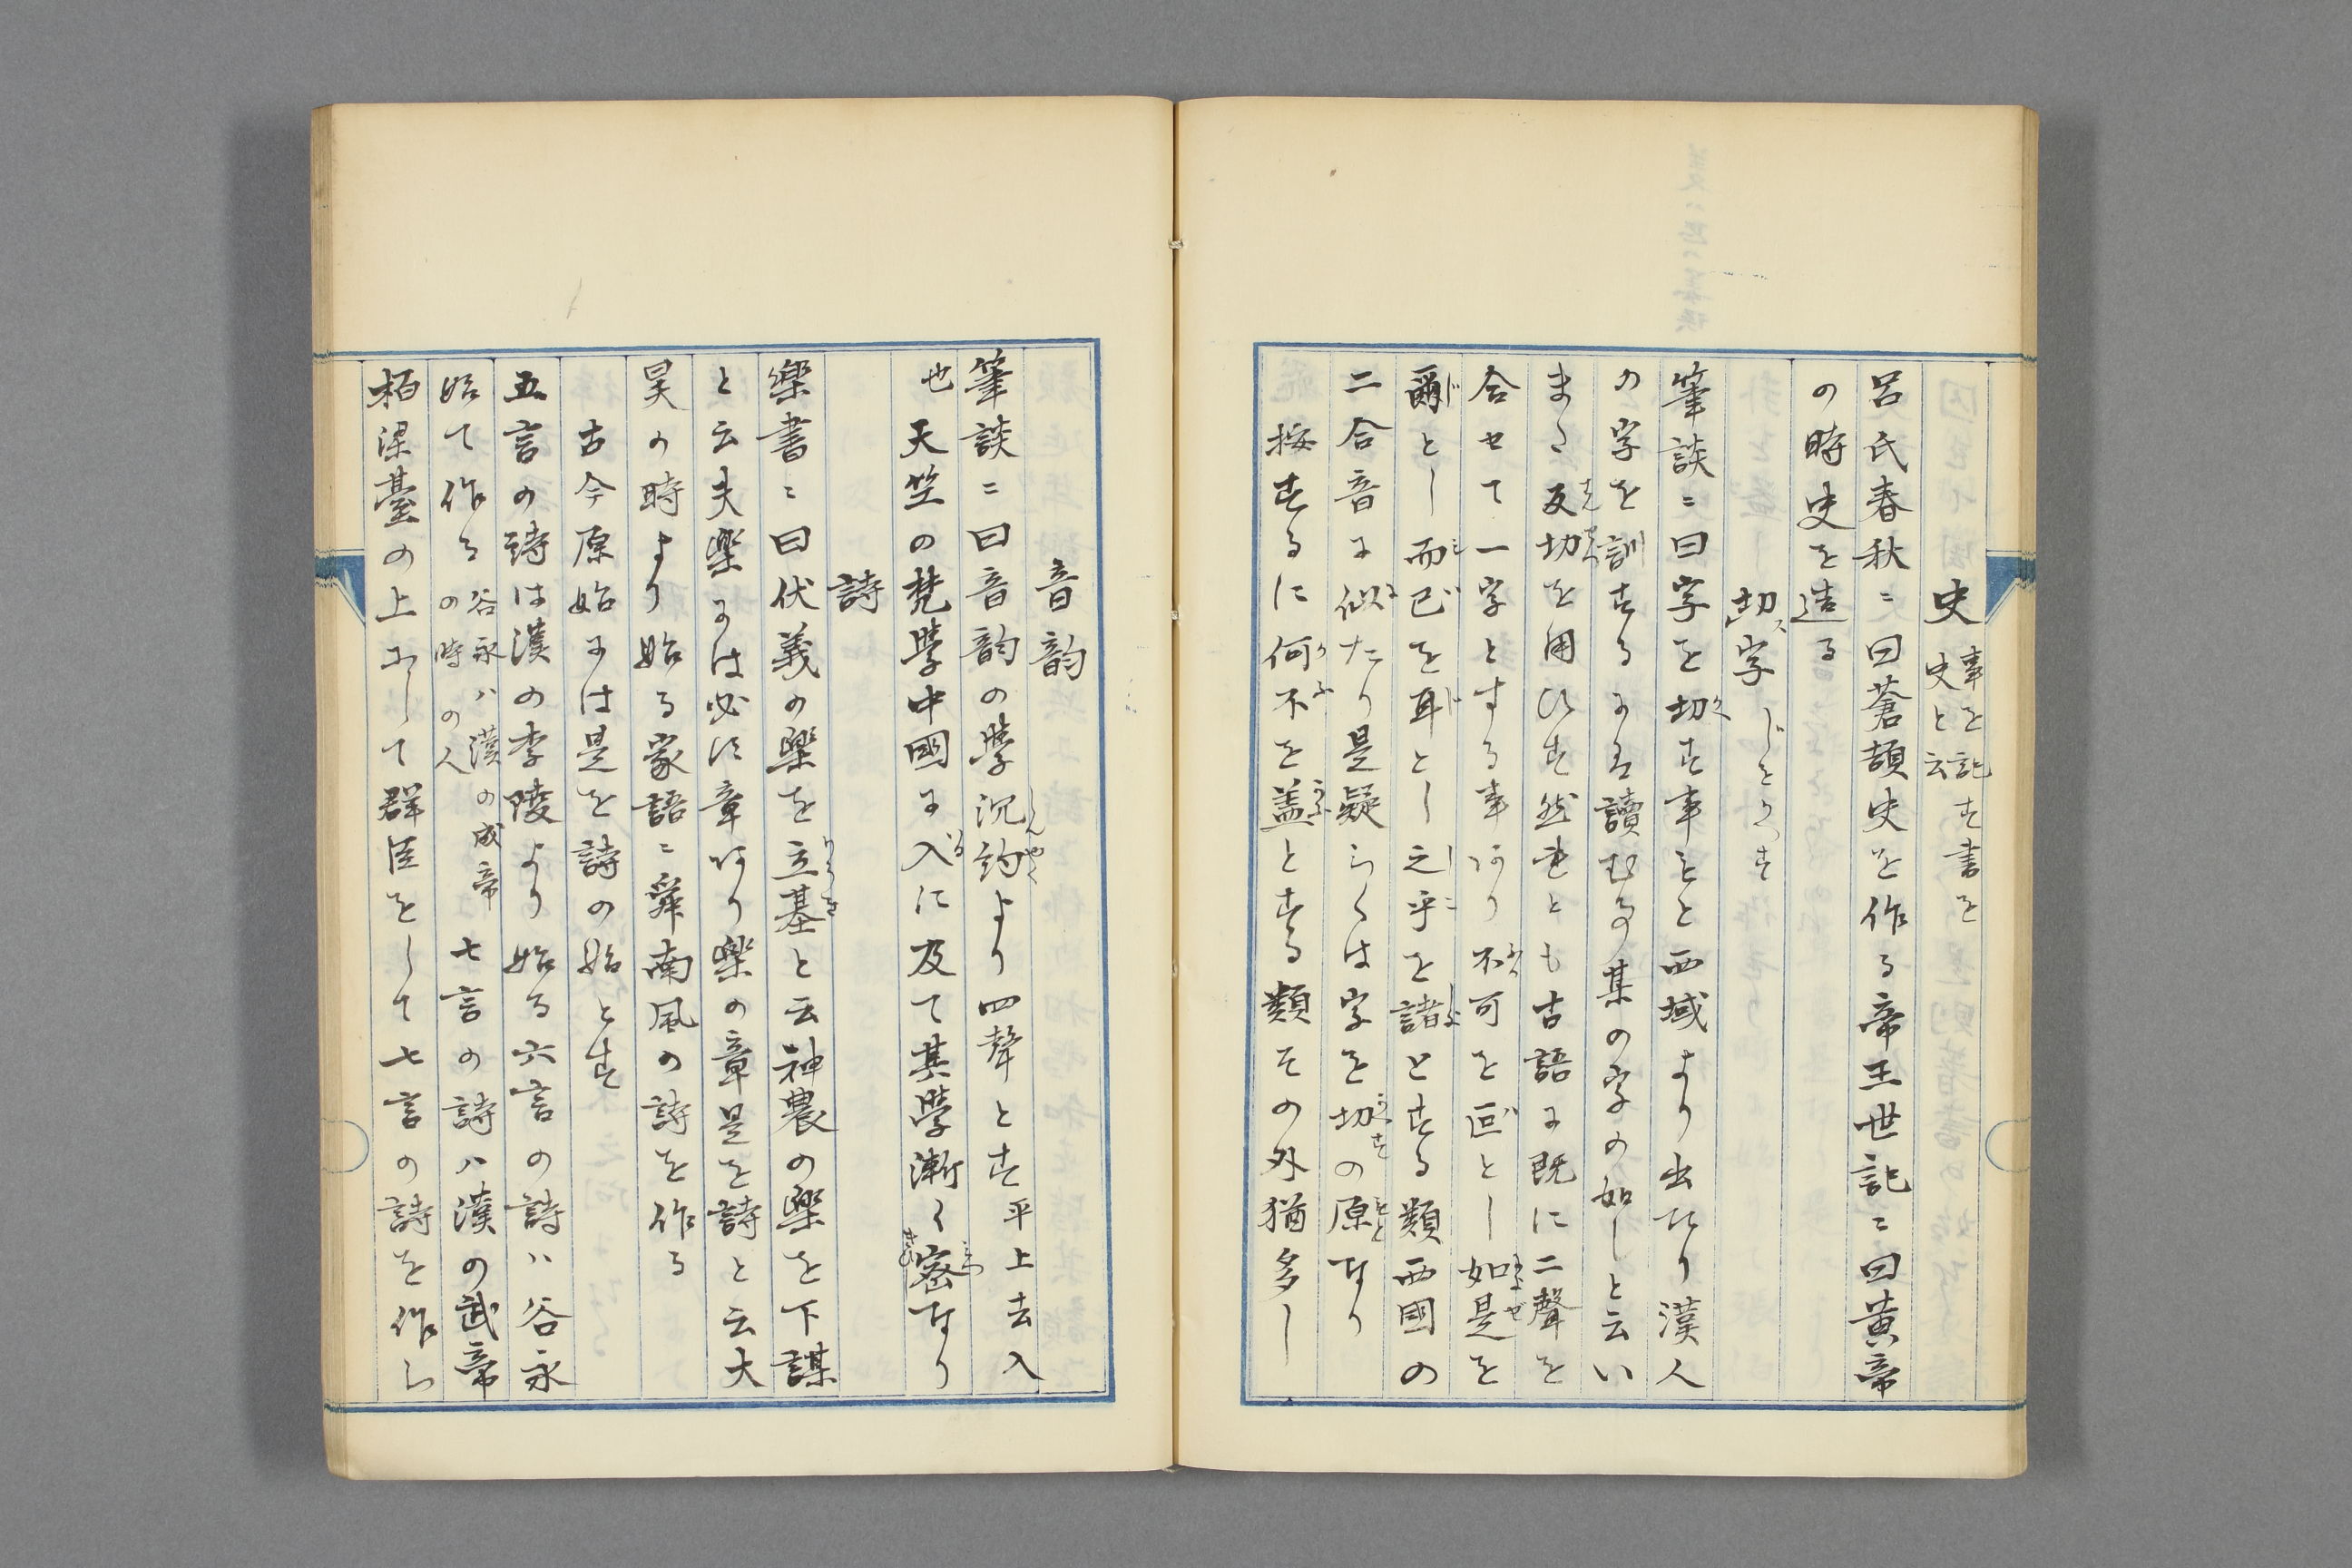 史 事を記す書を史と云
呂氏春秋ニ曰蒼頡史を作る帝王世記ニ曰黄帝
の時史を造る
切字 じをかへす
筆談ニ曰字を切す事もと西域より出たり漢人
の字を訓するには讀む事某の字の如しと云い
また反切を用ひす然れとも古語に既に二聲を
合せて一字とする事有り不可を叵とし如是を
爾とし而已を耳とし之乎を諸とする類西國の
二合音に似たり是疑らくは字を切すの原なり
按するに何不を盖とする類その外猶多し
音韵
筆談ニ曰音韵の學沉約より四聲とす平上去入
也天竺の梵學中國に入に及て其學漸く密なり
詩
樂書ニ曰伏義の樂を立基と云神農の樂を下謀
と云夫樂には必す章有り樂の章是を詩と云大
昊の時より始る家語ニ舜南風の詩を作る
古今原始には是を詩の始とす
五言の詩は漢の李陵より始る六言の詩ハ谷永
始て作る 谷永ハ漢の成帝の時の人 七言の詩ハ漢の武帝
栢梁臺の上にして群臣をして七言の詩を作ら